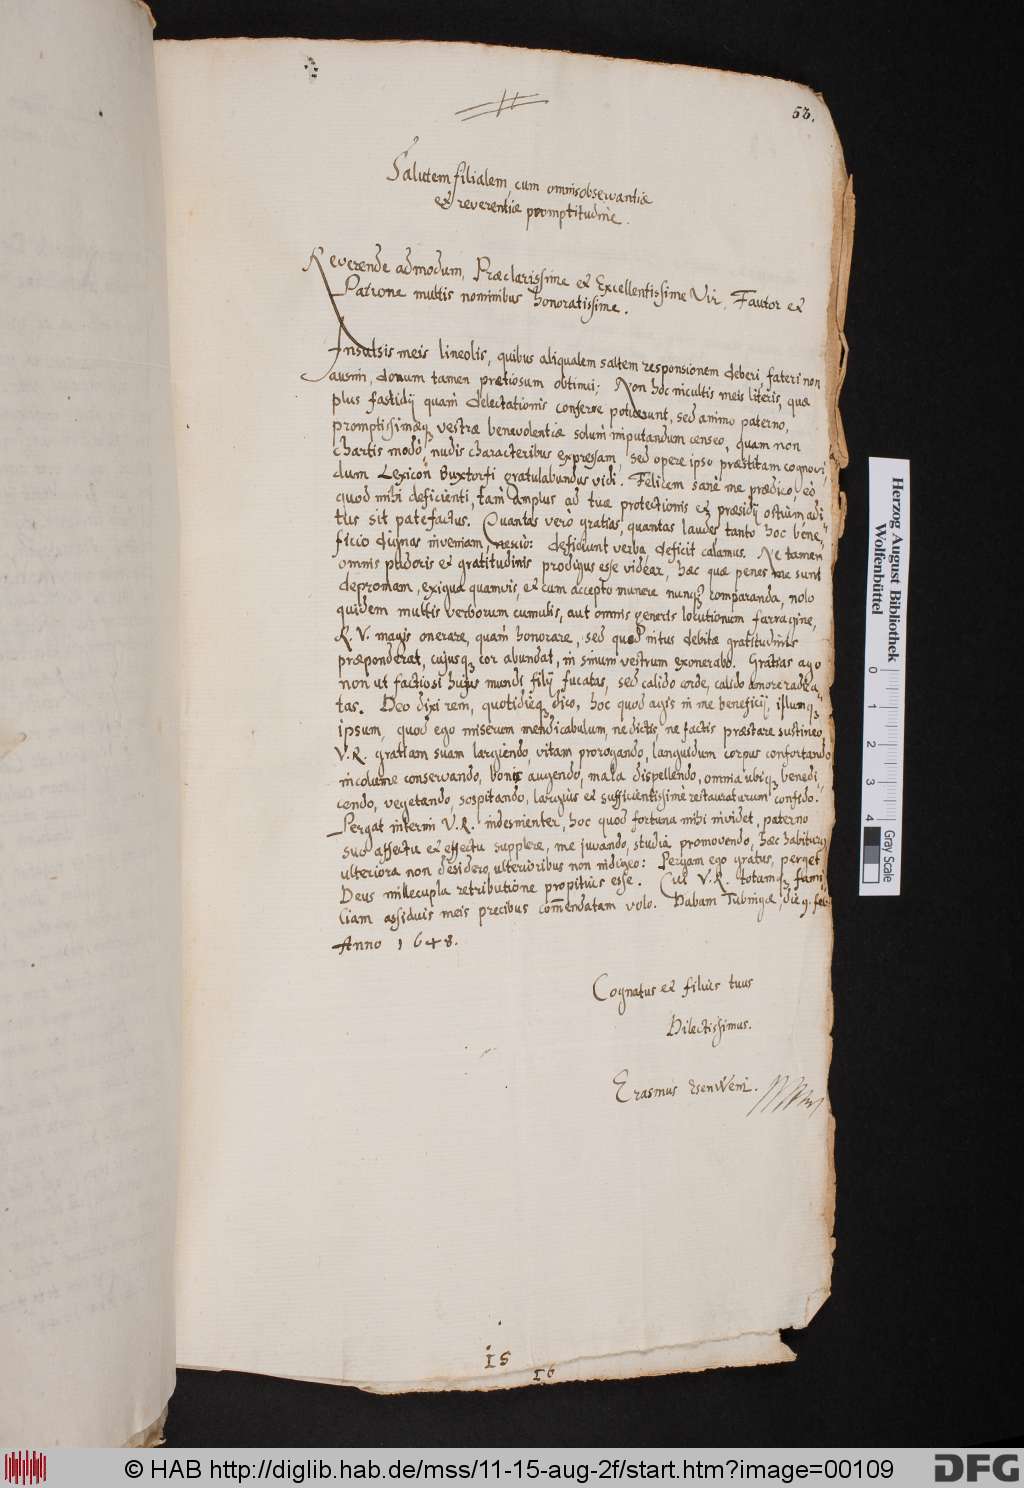 53.
Salutem filialem, cum omnis observantiæ
et reverentiæ promptitudine.
Reverende admodum, Præclarissime et Excellentissime Vir, Fautor et
Patrone multis nominibus honoratissime.
Insulsis meis lineolis, quibus aliqualem saltem responsionem deberi, fateri non
ausim, donum tamen pretiosum obtinui; Non hoc incultis meis literis, quæ
plus fastidij quam delectationis conferre potuerunt, sed animo paterno,
promptissimæq vestræ benevolentiæ solum imputandum censeo, quam non
chartis modò, nudis characteribus expressam, sed opere ipso præstitam cognovi,
dum Lexicon Buxtorfi gratulabundus vidi. Felicem sanè me prædico, eò
quod mihi deficienti, tam amplus ad tuæ protectionis et præsidij ostium, adi-
tus sit patefactus. Quantas verò gratias, quantas laudes tanto hoc bene-
ficio dignas inveniam, nescio: deficiunt verba, deficit calamus. Ne tamen
omnis pudoris et gratitudinis prodigus esse videar, hæc quæ penes me sunt
depromam, exigua quamvis, et cum accepto munere nunq comparanda, nolo
quidem multis verborum cumulis, aut omnis generis locutionum farragine,
R. V. magis onerare, quam honorare, sed quod intus debitæ gratitudinis
præponderat, cujusq cor abundat, in sinum vestrum exonerabo. Gratias ago
non ut factiosi hujus mundi filij fucatas, sed calido corde, calido amore radica-
tas. Deo dixi rem, quotidieq dico, hoc quod agis in me beneficij, illumq
ipsum, quod ego miserum mendicabulum, ne dictis, ne factis præstare sustineo,
V. R. gratiam suam largiendo, vitam prorogando, languidum corpus confortando,
incolume conservando, bonis augendo, mala dispellendo, omnia ubiq benedi-
cendo, vegetando, sospitando, largius et sufficientissimè restauraturum confido.
Pergat interim V. R. indesinenter, hoc quod fortuna mihi invidet, paterno
suo affectu et effectu supplere, me juvando, studia promovendo, hæc habiturus
ulteriora non desidero, ulterioribus non indigeo: Pergam ego gratus, perget
Deus millecupla retributione propitius esse. Cui V. R. totamq fami-
liam assiduis meis precibus com̄endatam volo. Dabam Tubingæ, die 9. feb.
Anno 1648.
Cognatus et filius tuus
Dilectissimus.
Erasmus EsenWein.
15
16
Herzog August Bibliothek
Wolfenbüttel
0 1 2 3 4
Gray Scale
© HAB http://diglib.hab.de/mss/11-15-aug-2f/start.htm?image=00109
DFG